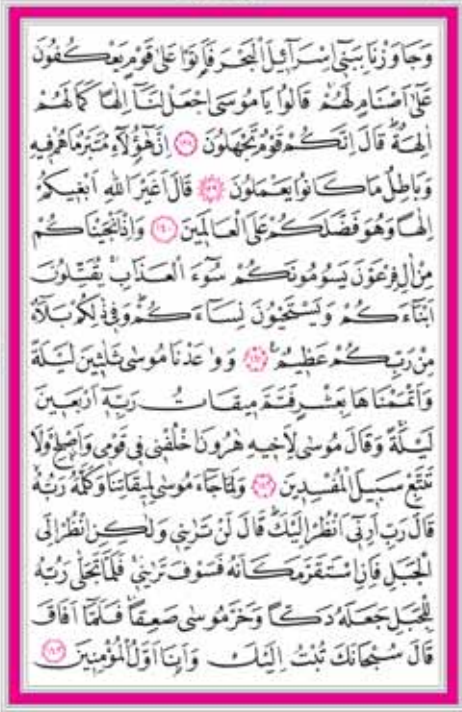 وَجَاوَزْنَا بِبَنٓى اِسْرَٓائِلَ الْبَحْرَ فَاَتَوْا عَلٰى قَوْمٍ يَعْكُفُونَ
عَلٰٓى اَصْنَامٍ لَهُمْۚ قَالُوا يَا مُوسَى اجْعَلْ لَنَٓا اِلٰهًا كَمَا لَهُمْ
اٰلِهَةٌۜ قَالَ اِنَّكُمْ قَوْمٌ تَجْهَلُونَ ﴿١٣٨﴾ اِنَّ هٰٓؤُ۬لَٓاءِ مُتَبَّرٌ مَا هُمْ فِيهِ
وَبَاطِلٌ مَا كَانُوا يَعْمَلُونَ ﴿١٣٩﴾ قَالَ اَغَيْرَ اللّٰهِ اَبْغِيكُمْ
اِلٰهًا وَهُوَ فَضَّلَكُمْ عَلَى الْعَالَمِينَ ﴿١٤٠﴾ وَاِذْ اَنْجَيْنَاكُمْ
مِنْ اٰلِ فِرْعَوْنَ يَسُومُونَكُمْ سُٓوءَ الْعَذَابِۚ يُقَتِّلُونَ
اَبْنَٓاءَكُمْ وَيَسْتَحْيُونَ نِسَٓاءَكُمْۜ وَفِى ذٰلِكُمْ بَلَٓاءٌ
مِنْ رَبِّكُمْ عَظِيمٌ۟ ﴿١٤١﴾ وَوٰعَدْنَا مُوسٰى ثَلٰثِينَ لَيْلَةً
وَاَتْمَمْنَاهَا بِعَشْرٍ فَتَمَّ مِيقَاتُ رَبِّهٓ اَرْبَعِينَ
لَيْلَةًۚ وَقَالَ مُوسٰى لِاَخِيهِ هٰرُونَ اخْلُفْنِى فِى قَوْمِى وَاَصْلِحْ وَلَا
تَتَّبِعْ سَبِيلَ الْمُفْسِدِينَ ﴿١٤٢﴾ وَلَمَّا جَٓاءَ مُوسٰى لِمِيقَاتِنَا وَكَلَّمَهُ رَبُّهُۙ
قَالَ رَبِّ اَرِنٓى اَنْظُرْ اِلَيْكَۜ قَالَ لَنْ تَرٰينِى وَلٰكِنِ انْظُرْ اِلَى
الْجَبَلِ فَاِنِ اسْتَقَرَّ مَكَانَهُ فَسَوْفَ تَرٰينِىۚ فَلَمَّا تَجَلّٰى رَبُّهُ
لِلْجَبَلِ جَعَلَهُ دَكًّا وَخَرَّ مُوسٰى صَعِقًاۚ فَلَمَّٓا اَفَاقَ
قَالَ سُبْحَانَكَ تُبْتُ اِلَيْكَ وَاَنَا۬ اَوَّلُ الْمُؤْمِنِينَ ﴿١٤٣﴾